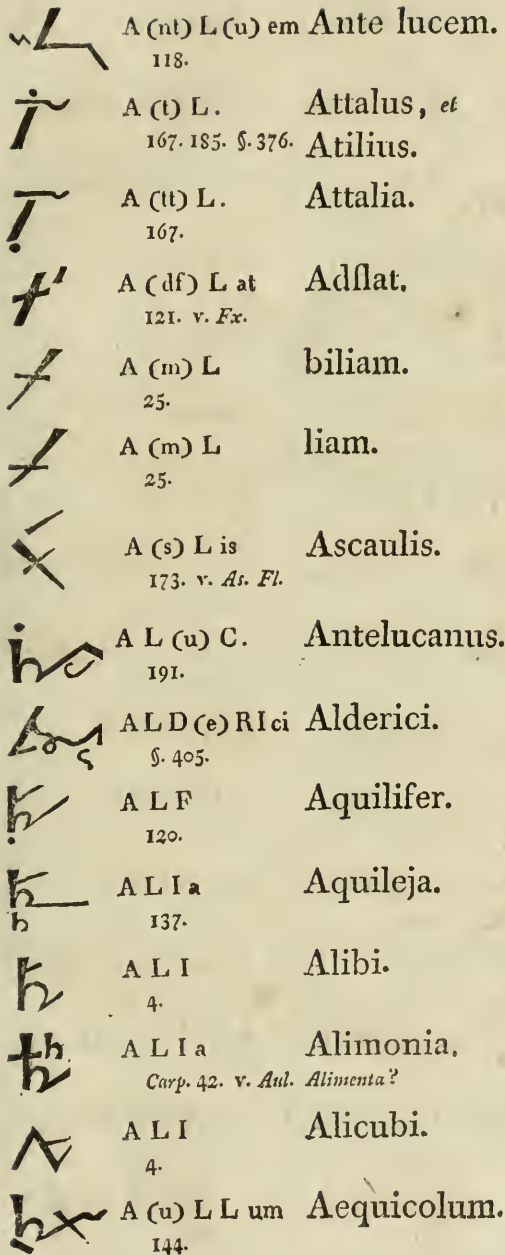 A (nt) L (u) em Ante lucem.
118.
A (t) L. Attalus, et
167. 185. §. 376. Atilius.
A (tt) L. Attalia.
167.
A (df) L at Adflat.
121. v. Fx.
A (m) L biliam.
25.
A (m) L liam.
25.
A (s) L is Ascaulis.
173. v. As. Fl.
A L (u) C. Antelucanus.
191.
A L D (e) R I ci Alderici.
§. 405.
A L F Aquilifer.
120.
A L I a Aquileja.
137.
A L I Alibi.
4.
A L I a Alimonia.
Carp. 42. v. Aul. Alimenta?
A L I Alicubi.
4.
A (u) L L um Aequicolum.
144.